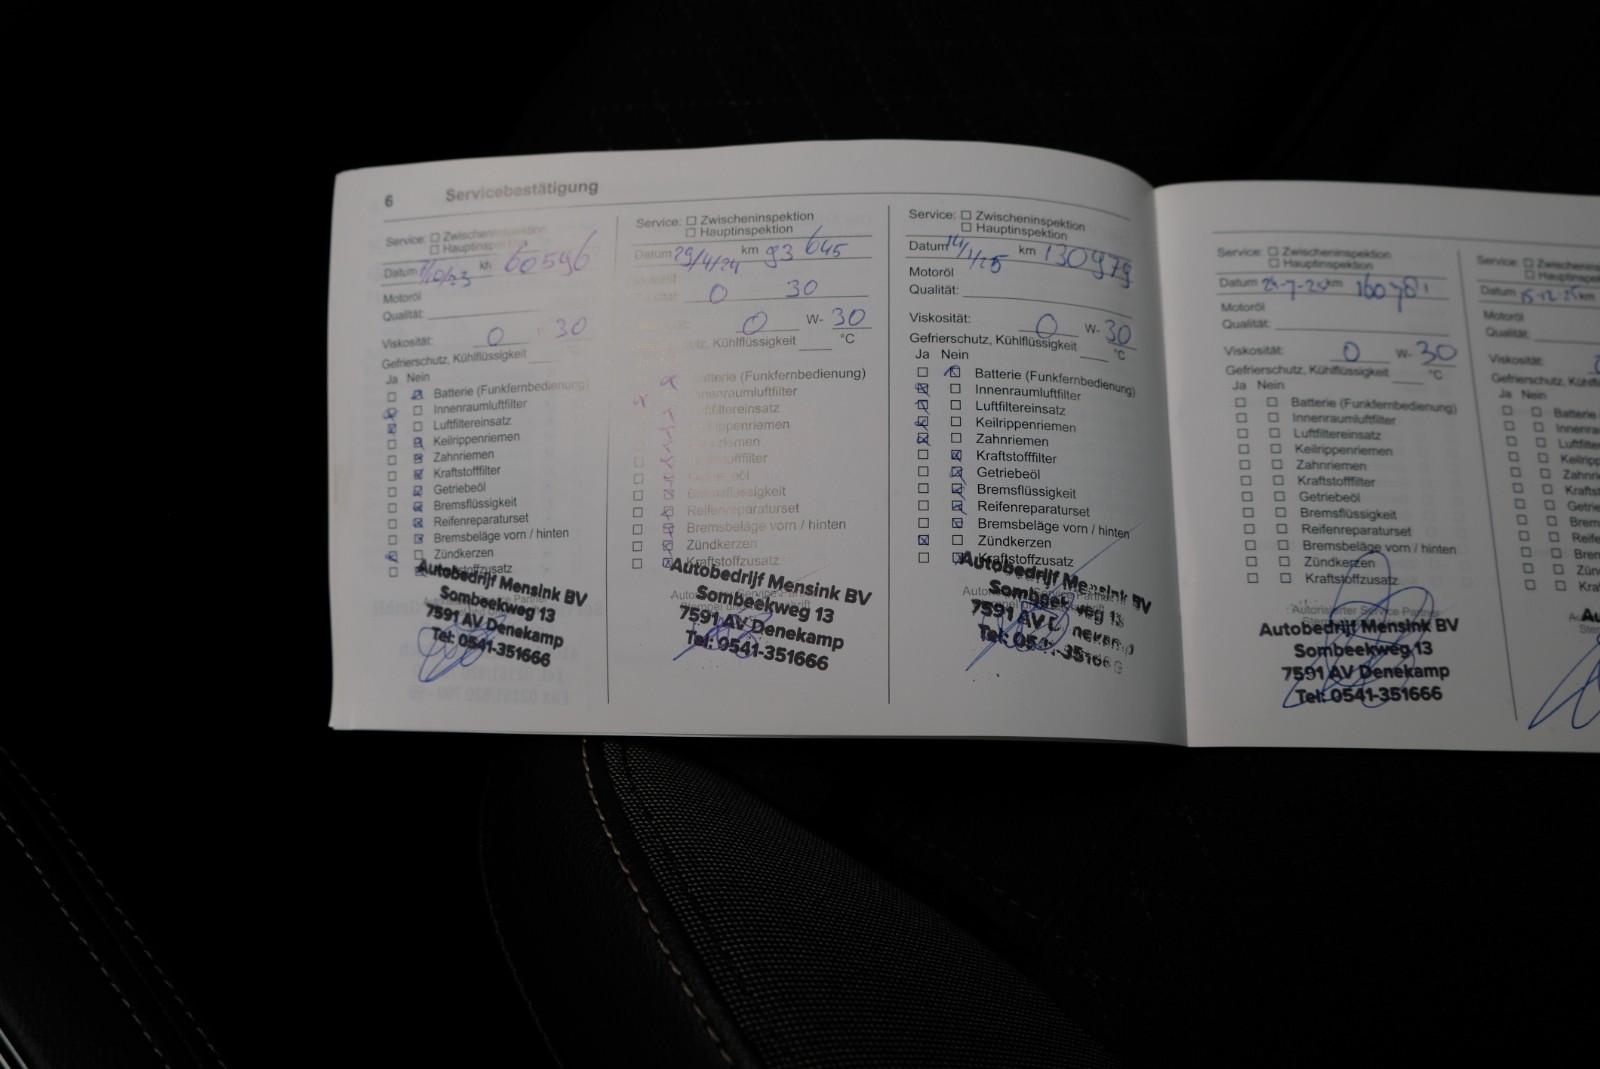 6 Servicebestätigung
Service: Zwischeninspektion
Hauptinspektion
Datum /10/23 km 60596
Motoröl
Qualität:
Viskosität: 0 30
Gefrierschutz, Kühlflüssigkeit
Ja Nein
Batterie (Funkfernbedienung)
Innenraumluftfilter
Luftfiltereinsatz
Keilrippenriemen
Zahnriemen
Kraftstofffilter
Getriebeöl
Bremsflüssigkeit
Reifenreparaturset
Bremsbeläge vorn / hinten
Zündkerzen
Autobedrijf Mensink BV
Sombeekweg 13
7591 AV Denekamp
Tel: 0541-351666
Service: Zwischeninspektion
Hauptinspektion
Datum 29/4/24 km 93 645
0 30
0 W- 30
Kühlflüssigkeit °C
Batterie (Funkfernbedienung)
Innenraumluftfilter
Luftfiltereinsatz
Keilrippenriemen
Zahnriemen
Kraftstofffilter
Getriebeöl
Bremsflüssigkeit
Reifenreparaturset
Bremsbeläge vorn / hinten
Zündkerzen
Kraftstoffzusatz
Autobedrijf Mensink BV
Sombeekweg 13
7591 AV Denekamp
Tel: 0541-351666
Service: Zwischeninspektion
Hauptinspektion
Datum 14/1/25 km 130979
Motoröl
Qualität:
Viskosität: 0 W- 30
Gefrierschutz, Kühlflüssigkeit °C
Ja Nein
Batterie (Funkfernbedienung)
Innenraumluftfilter
Luftfiltereinsatz
Keilrippenriemen
Zahnriemen
Kraftstofffilter
Getriebeöl
Bremsflüssigkeit
Reifenreparaturset
Bremsbeläge vorn / hinten
Zündkerzen
Kraftstoffzusatz
Autobedrijf Mensink BV
Sombeekweg 13
7591 AV Denekamp
Tel: 0541-351666
Service: Zwischeninspektion
Hauptinspektion
Datum km
Motoröl
Qualität:
Viskosität: 0 W- 30
Gefrierschutz, Kühlflüssigkeit °C
Ja Nein
Batterie (Funkfernbedienung)
Innenraumluftfilter
Luftfiltereinsatz
Keilrippenriemen
Zahnriemen
Kraftstofffilter
Getriebeöl
Bremsflüssigkeit
Reifenreparaturset
Bremsbeläge vorn / hinten
Zündkerzen
Kraftstoffzusatz
Autorisierter Service Partner
Autobedrijf Mensink BV
Sombeekweg 13
7591 AV Denekamp
Tel: 0541-351666
Service:
Datum 15-12-25 km
Motoröl
Qualität:
Ja Nein